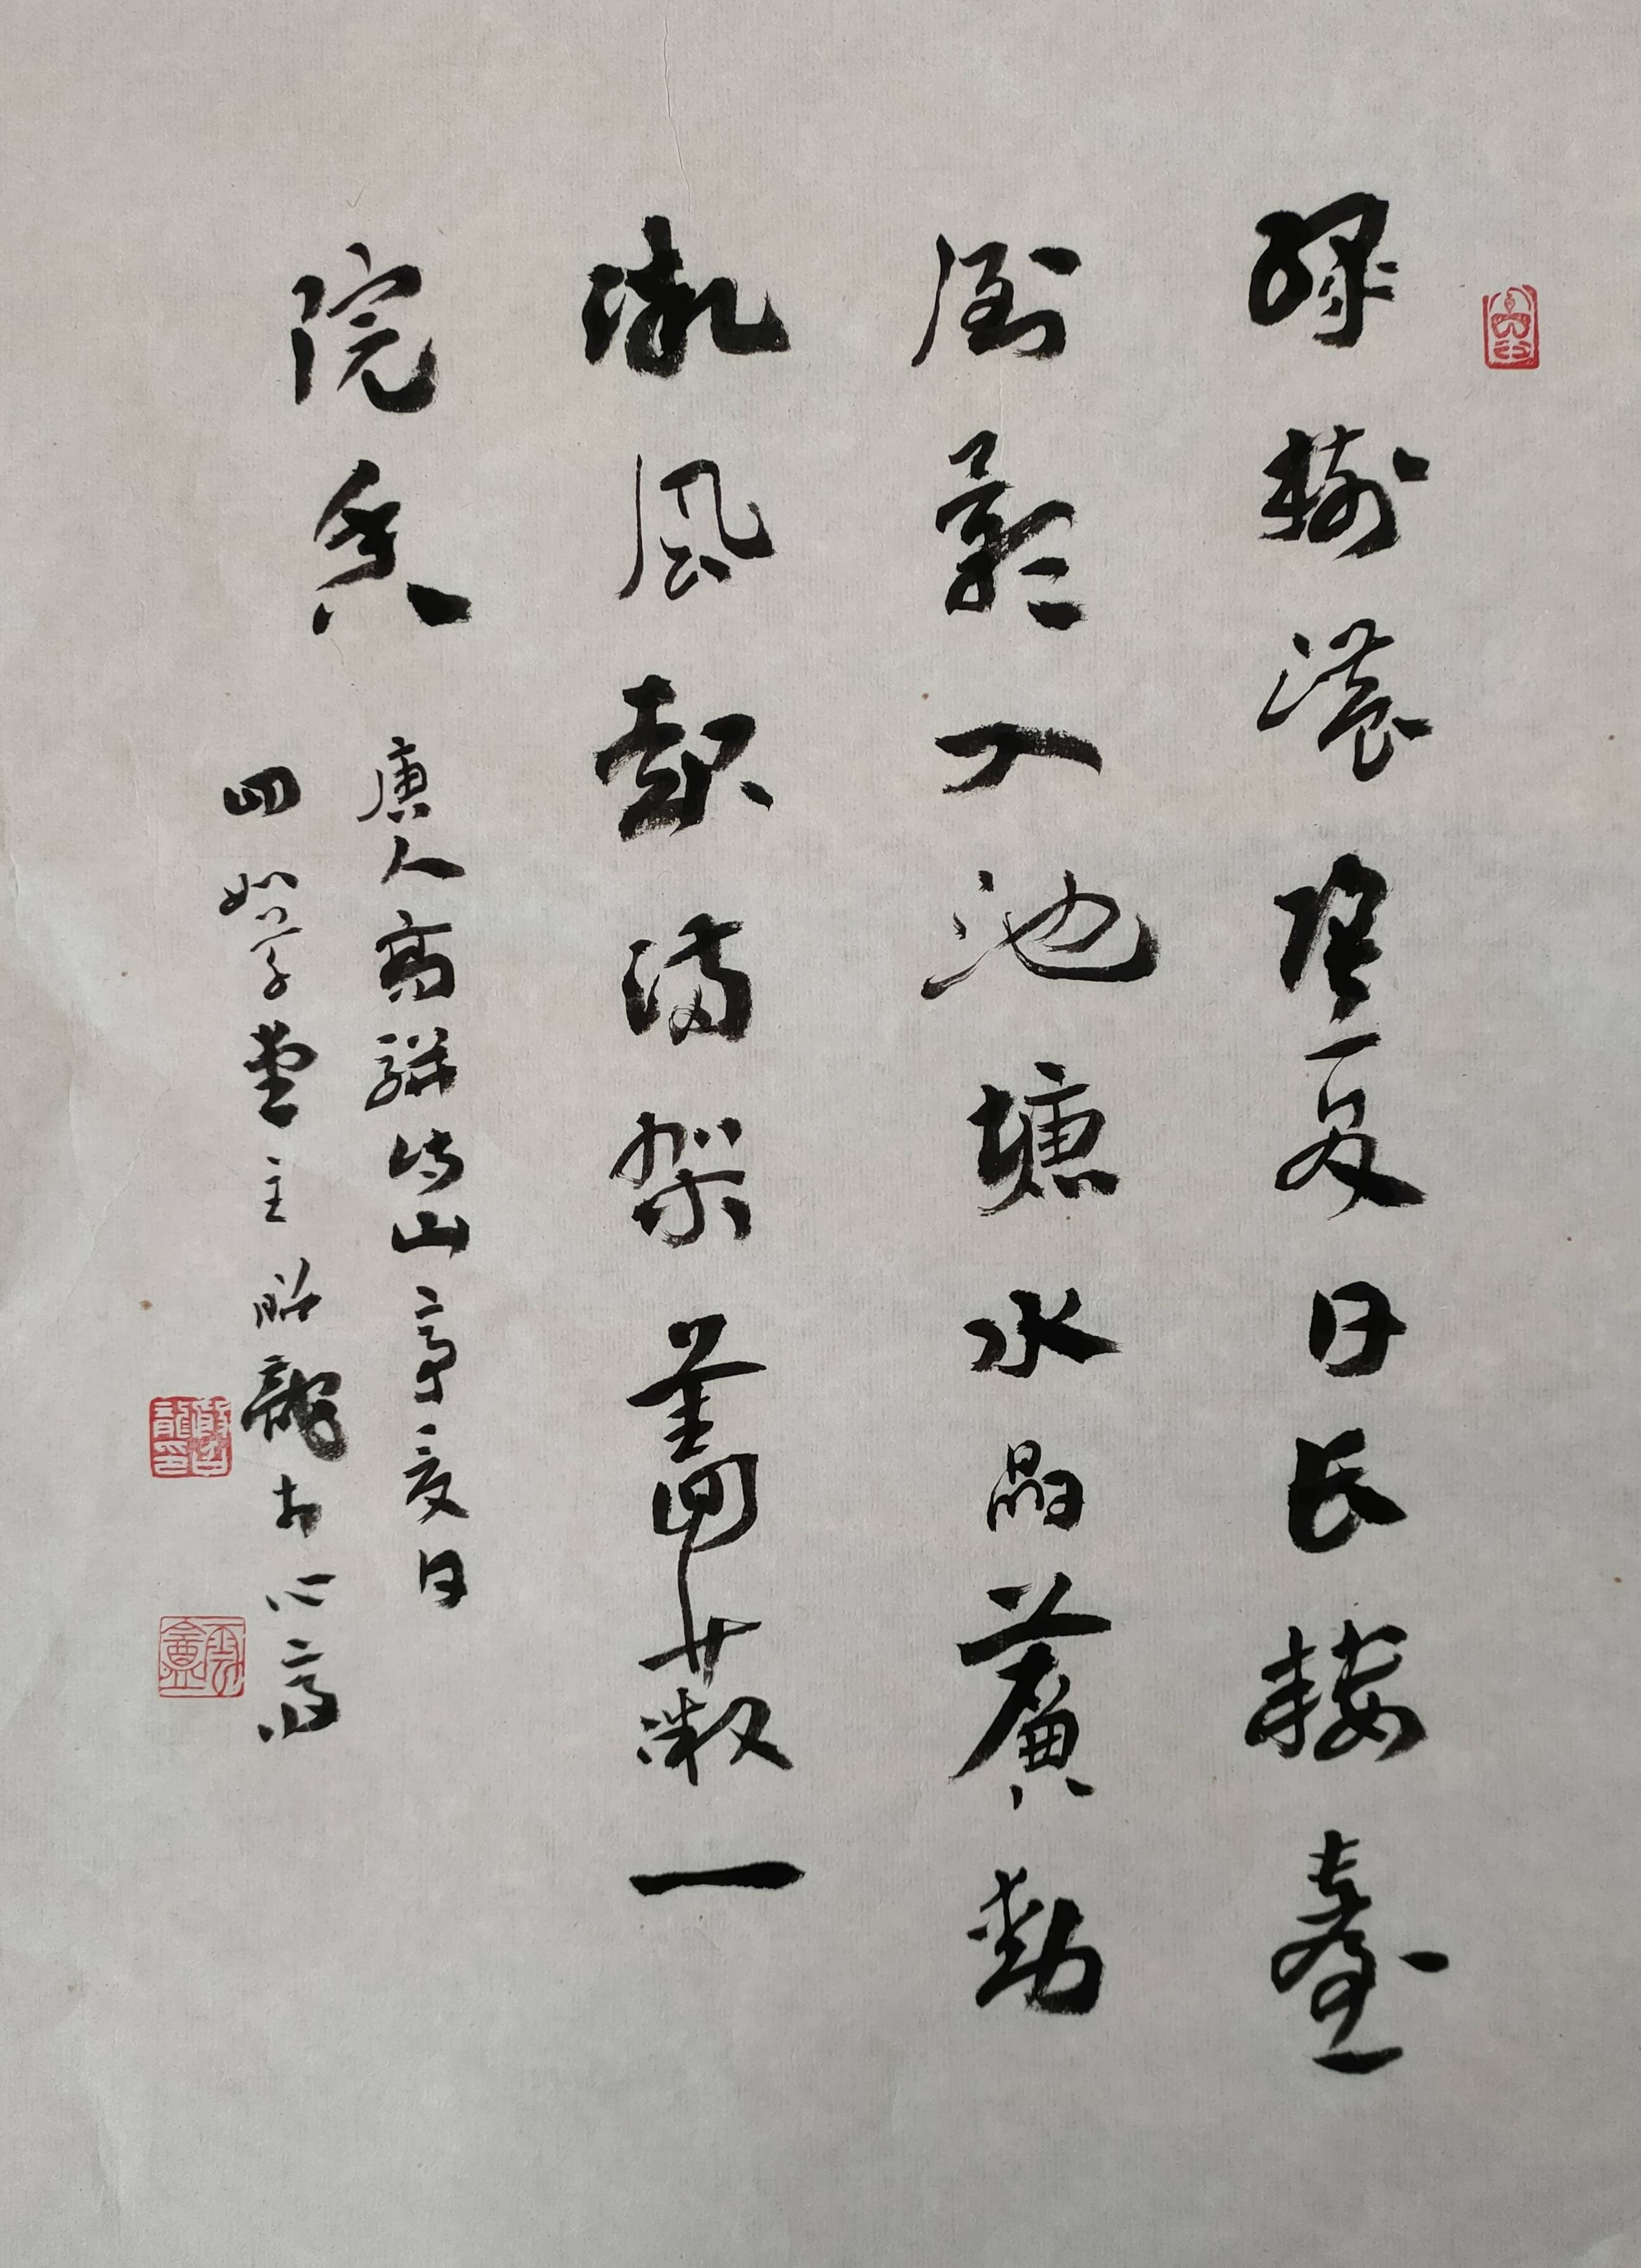 綠樹濃陰夏日長樓臺
倒影入池塘水晶簾動
微風起滿架薔薇一
院香
唐人高駢詩山亭夏日
四如堂主龍書心齋